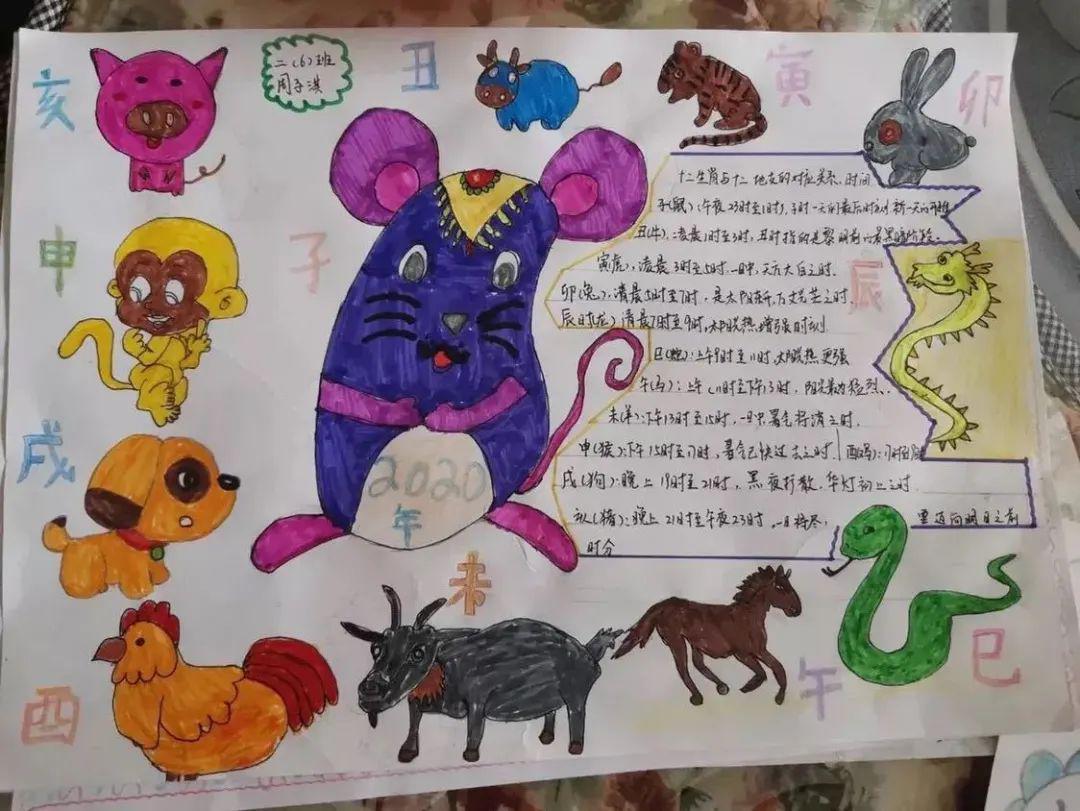 亥
二(6)班
周子淇
丑
寅
卯
申
子
辰
戌
2020
年
未
酉
午
巳
十二生肖与十二地支的对应关系、时间
子(鼠)(午夜23时至1时),子时一天的最后时刻新一天的开端
丑(牛),凌晨1时至3时,丑时指的是黎明前
寅虎),凌晨3时至5时
卯(兔):清晨5时至7时,是太阳东升,之时
辰时(龙)清晨7时至9时,太阳热增强时刻
巳(蛇):上午9时至11时,太阳热更强
午(马):上午11时至下午13时,阳光最为猛烈.
未(羊):下午13时至15时,一日中暑气将消之时,
申(猴):下午15时至17时,暑气已快过去之时 酉鸡):17时至19时
戌(狗):晚上19时至21时,黑夜 华灯初上之时
(猪):晚上21时至午夜23时,一日将尽,
里迈向明日之前
时分